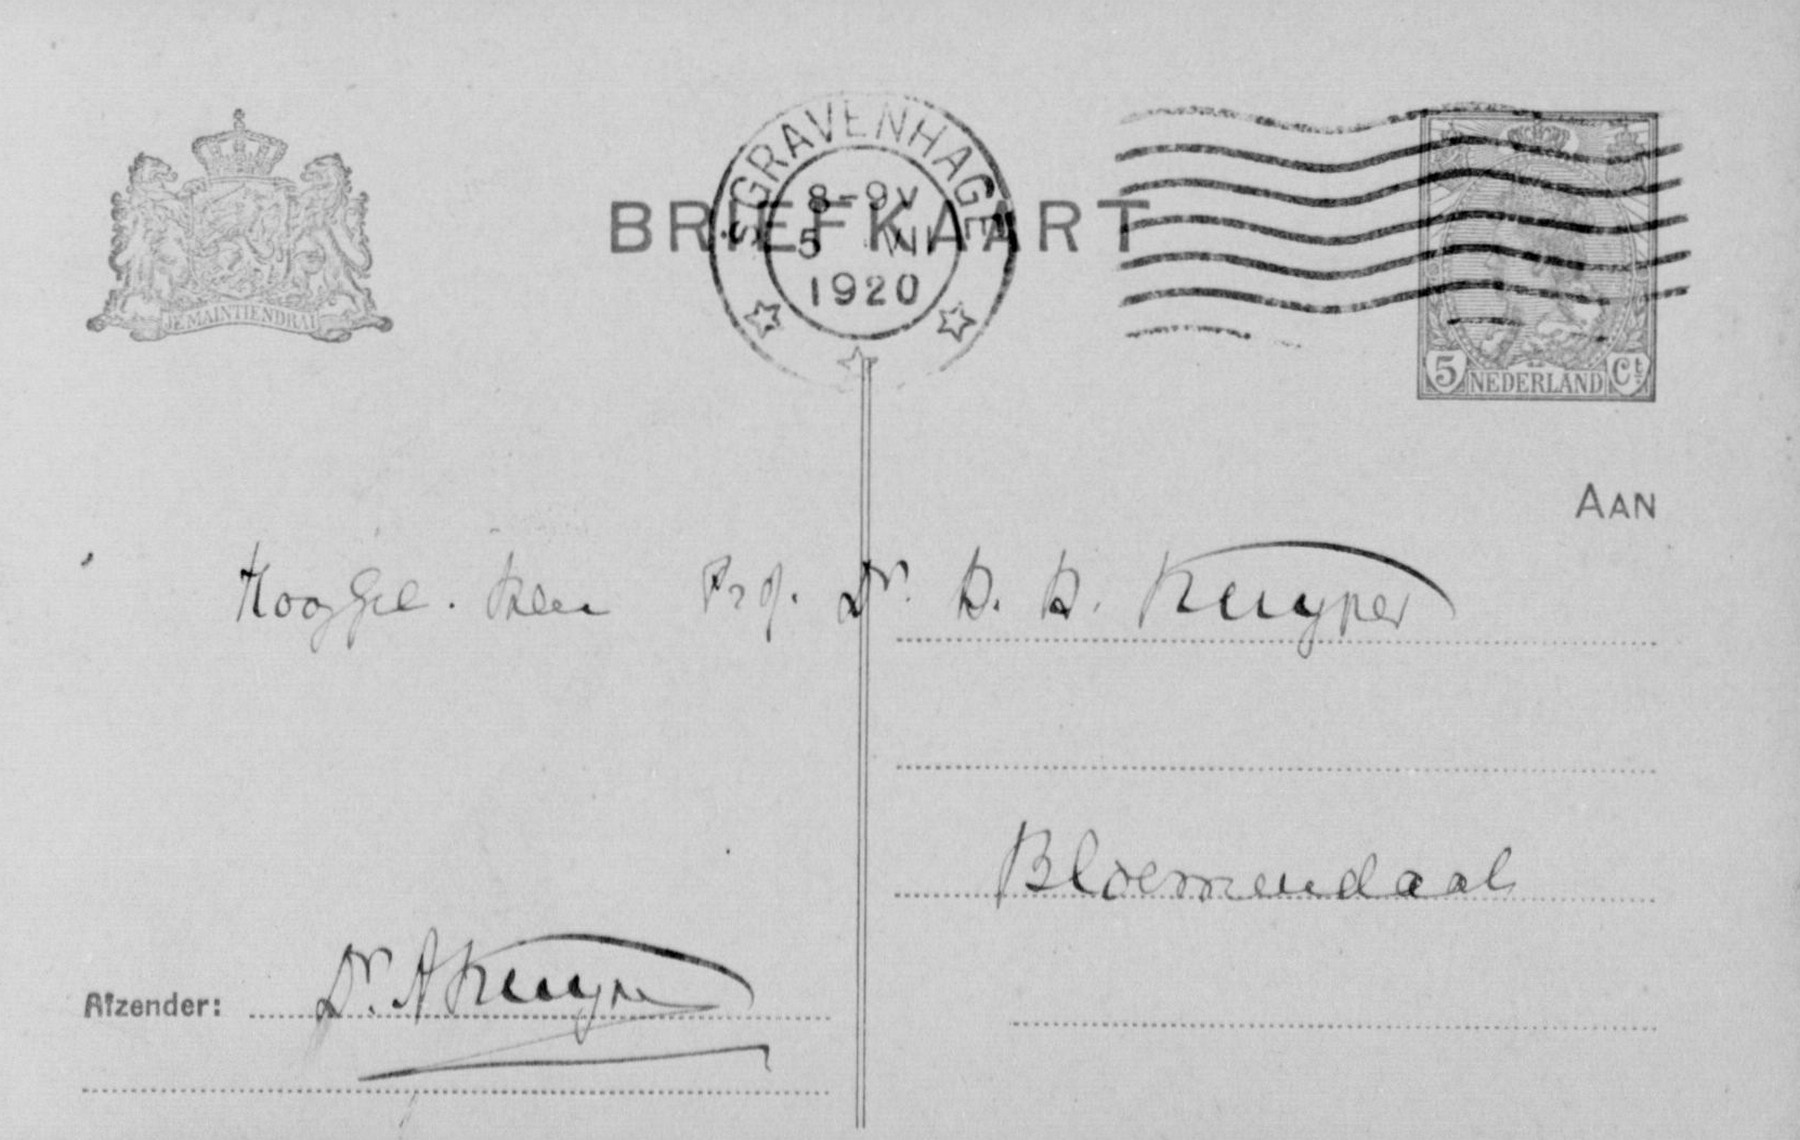 'S GRAVENHAGE
8-9V
5 VII
1920
BRIEFKAART
JE MAINTIENDRAI
5 NEDERLAND Ct.
AAN
HoogGel. Heer Prof. Dr. H. H. Kuyper
Bloemendaal
Afzender: Dr. A Kuyper